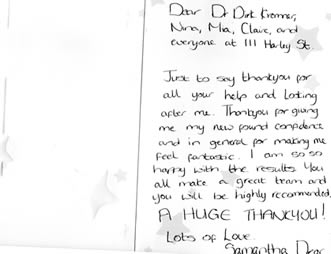 Dear Dr Dirk Kremer,
Nina, Mia, Claire, and
everyone at 111 Harley St.
Just to say thankyou for
all your help and looking
after me. Thankyou for giving
me my new found confidence
and in general for making me
feel fantastic. I am so so
happy with the results. You
all make a great team and
you will be highly recommended.
A HUGE THANKYOU!
Lots of Love.
Samantha